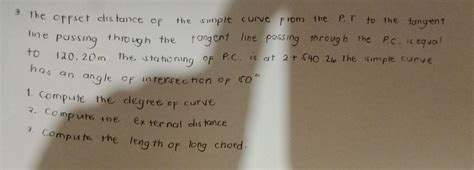 3. The offset distance of the simple curve from the P.T to the tangent
line passing through the tangent line passing through the P.C. is equal
to 120.20m The stationing of P.C. is at 2+540.26 The simple curve
has an angle of intersection of 50°
1. Compute the degree of curve
2. Compute the external distance
3. Compute the length of long chord.